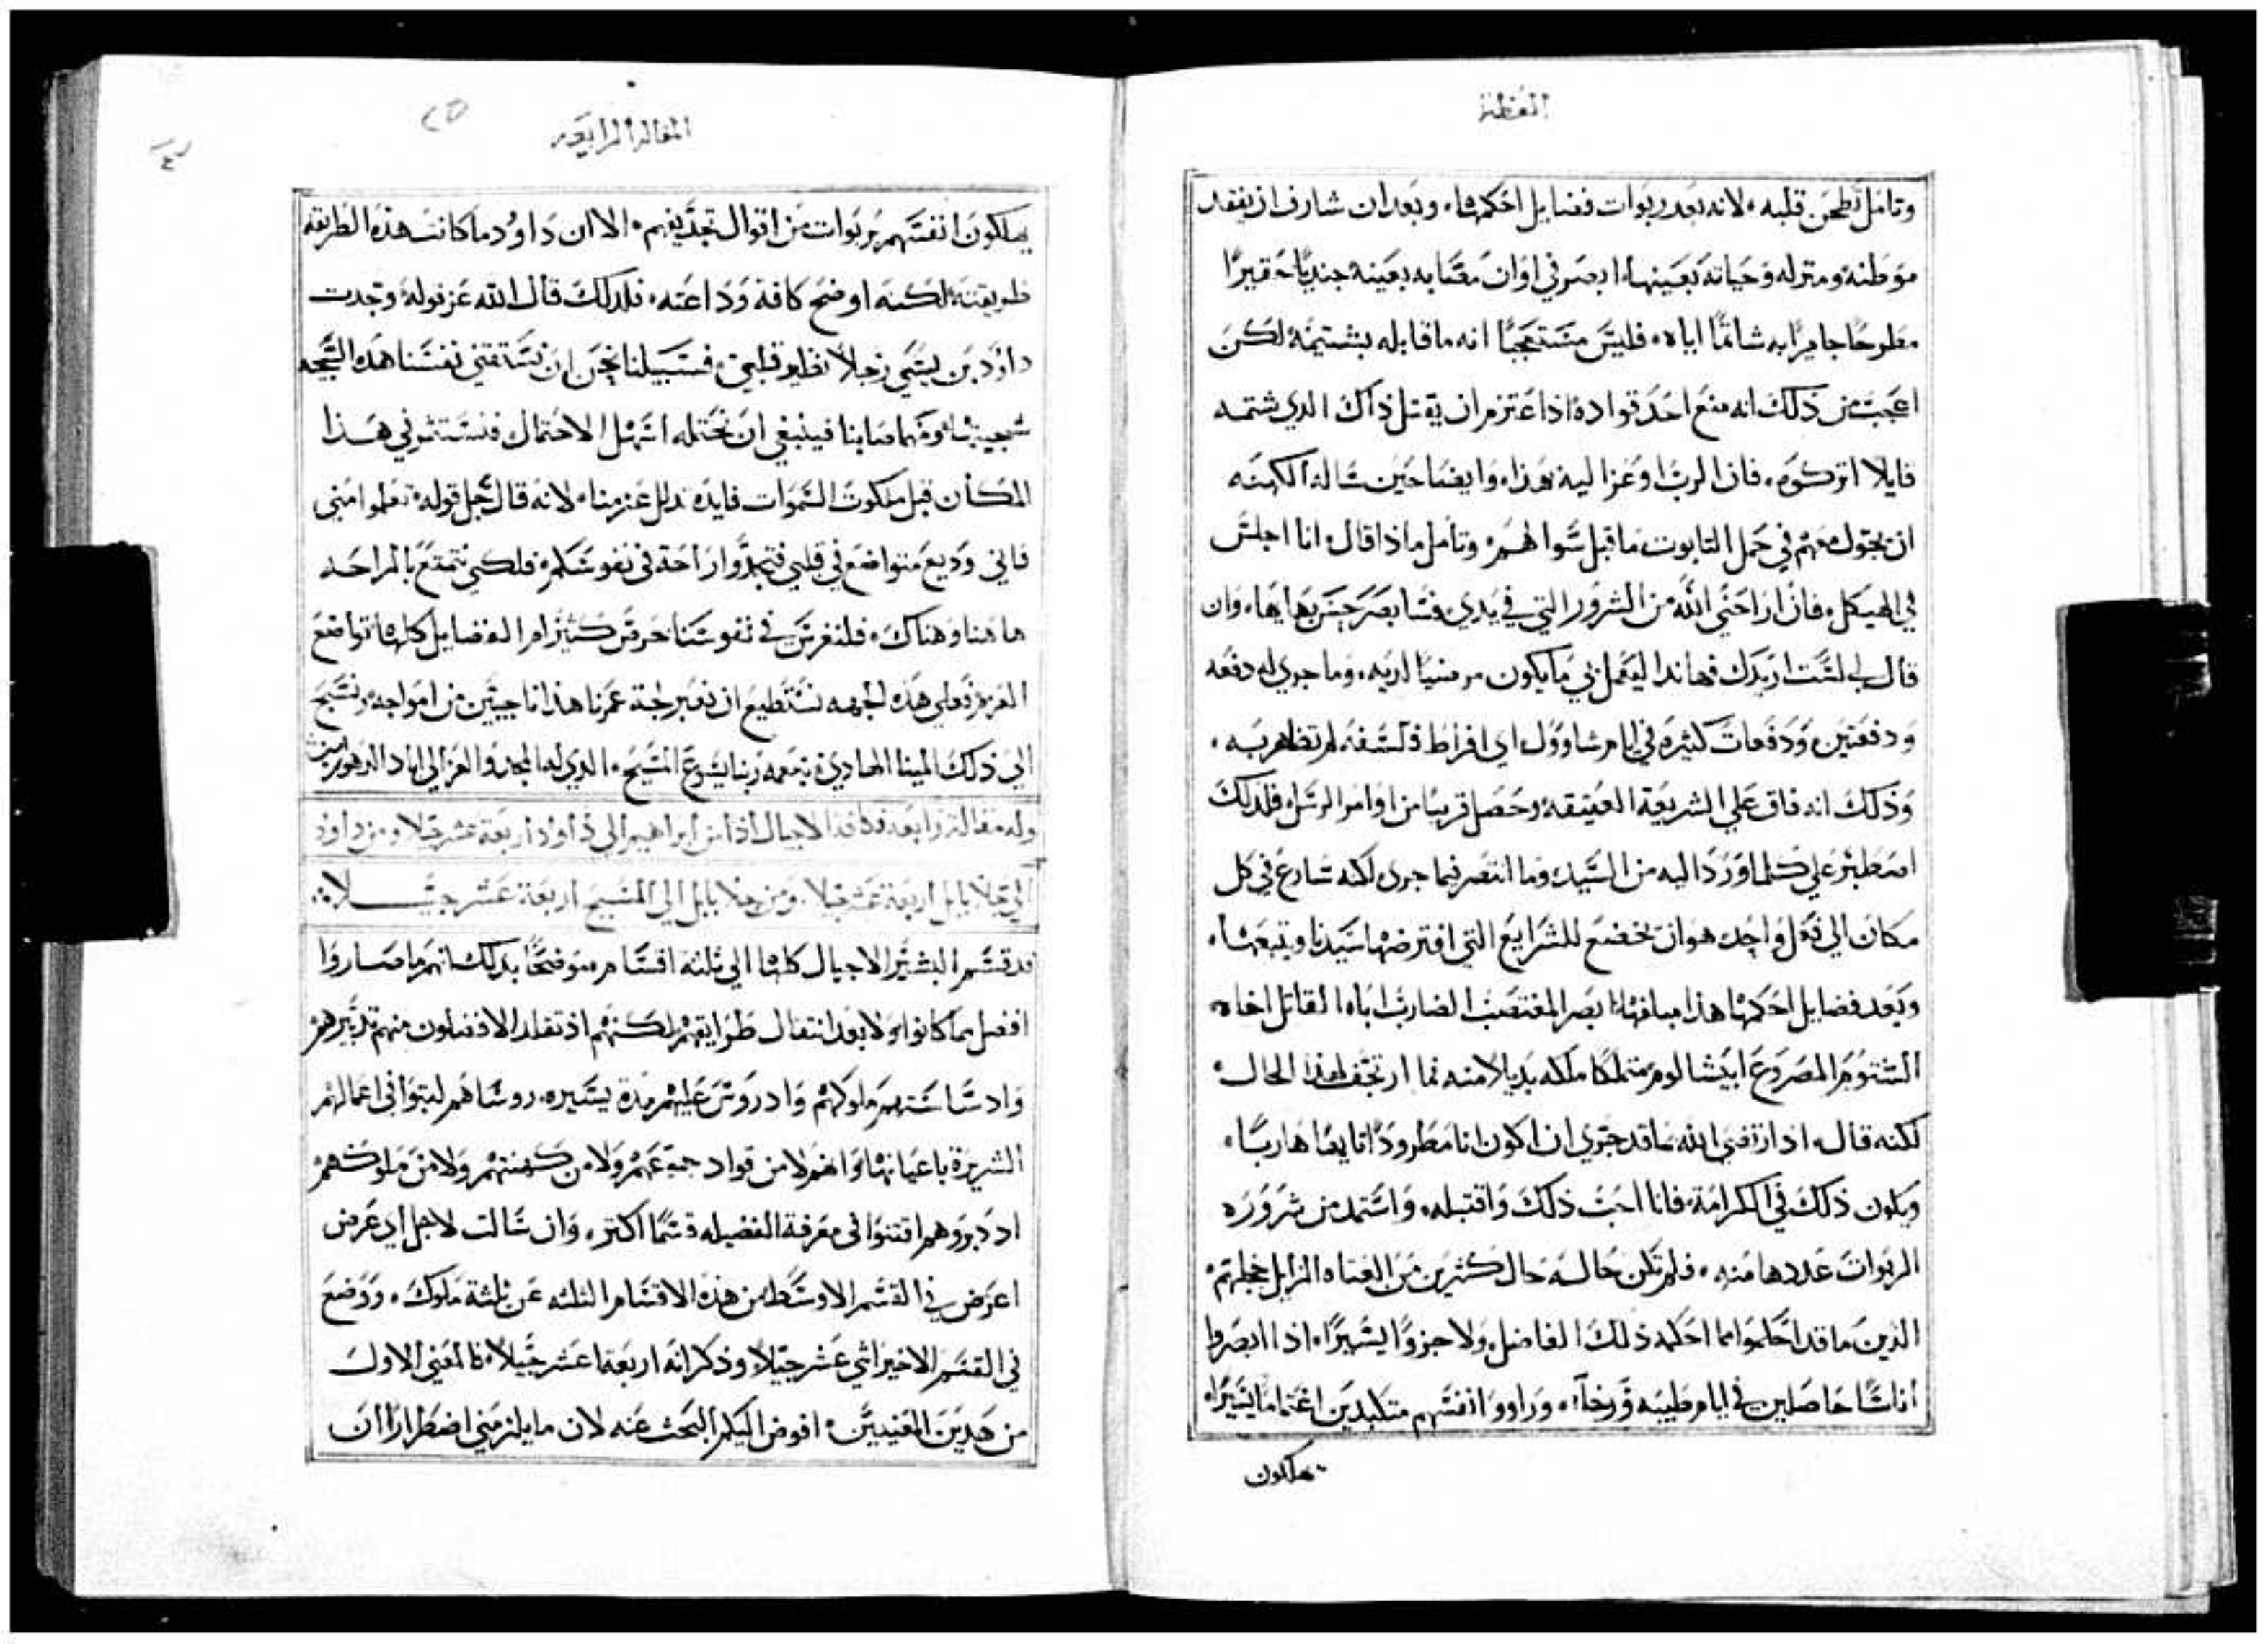 العظة
وتامل تطحن قلبه لانه بعد ربوات فضايل احكمها وبعد ان شارف ان يفقد
موطنه ومنزله وحياته بعينها ابصر في اوان مصابه بعينه جنديًا حقيرًا
مطروحًا جايرًا به شاتمًا اياه فليس مستعجبًا انه ما قابله بشتيمه لكن
اعجب من ذلك انه منع احد قواده اذ اعتزم ان يقتل ذاك الدي شتمه
قايلا اتركوه فان الرب اوعز اليه بهذا وايضا حين ساله الكهنه
ان يجول معهم في حمل التابوت ما قبل سوالهم وتامل ماذا قال انا اجلس
في الهيكل فان اراحني الله من الشرور التي في يدي فسابصر حسن بهايها وان
قال لي لست اريدك فهاندا ليعمل بي ما يكون مرضيًا لديه وما جري له دفعه
ودفعتين ودفعات كثيره في ايام شاوول اي افراط فلسفه لم تظهر به
وذلك انه فاق علي الشريعه العتيقه وحصل قريبا من اوامر الرسل فلدلك
اصطبر علي كلما ورد اليه من السيد وما انتصر فيما جري لكنه سارع في كل
مكان الي فعل واحد هو ان يخضع للشرايع التي افترضها سيدنا ويتبعها
وبعد فضايل احكمها هذا مبلغها ابصر المغتصب الضارب اباه القاتل اخاه
الشتوم المصروع ابيشالوم متملكًا ملكه بديلا منه فما ارتجف لهذا الحال
لكنه قال اذ ارتضي الله بما قد جري ان اكون انا مطرودًا تايها هاربًا
ويكون ذلك في الكرامه فانا احب ذلك واقتبله واستمد من شروره
الربوات عددها منه فلم تكن حاله حال كثيرين من العتاه الزايل خجلهم
الذين ما قد احكموا مما احكمه ذلك الفاضل ولا جزوًا يسيرًا اذا ابصروا
اناسًا حاصلين في ايام طيبه ورخآء وراوو انفسهم متكبدين اغتمامًا يسيرًا
يهلكون
المقالة الرابعه
٢٥
يهلكون انفسهم بربوات من اقوال تجديفهم الا ان داود ما كانت هذه الطريقه
طريقته لكنه اوضح كافة وداعته فلدلك قال الله عز قوله وجدت
داود بن يسي رجلاً نظير قلبي فسبيلنا نحن ان نستقتني نفسنا هذه السجيه
سجيتها ومهما صابنا فينبغي ان نحتمله اسهل الاحتمال فنستثمر في هذا
المكان قبل ملكوت السموات فايدة تدلل عزمنا لانه قال جل قوله تعلموا مني
فاني وديع متواضع في قلبي فتجدوا راحة في نفوسكم فلكي نتمتع بالراحه
هاهنا وهناك فلنغرس في نفوسنا حرص كثير ام الفضايل كلها تواضع
العزم فعلي هذه الجهه نستطيع ان نعبر لجة عمرنا هذا ناجيين من امواجه ونسبح
الي ذلك المينا الهادي بنعمه ربنا يسوع المسيح الدي له المجد والعز الي اباد الدهور امين
وله مقالة رابعه فكافة الاجيال اذا من ابراهيم الي داود اربعة عشر جيلا ومن داود
الي جلا بابل اربعة عشر جيلا ومن جلا بابل الي المسيح اربعة عشر جيـــــلا
قد قسم البشير الاجيال كلها الي ثلثة اقسام موضحًا بدلك انهم ما صاروا
افضل مما كانوا ولا بعد انتقال طرايقهم لكنهم اذ تقلد الافضلون منهم تدبيرهم
واد ساستهم ملوكهم وادروس عليهم مدة يسيره روساهم لبثوا في اعمالهم
الشريرة باعيانها ولا من قواد جمعهم ولا من كهنتهم ولا من ملوكهم
اد دبروهم اقتنوا في معرفة الفضيله قسمًا اكثر وان سالت لاجل اي غرض
اعرض في القسم الاوسط من هذه الاقسام الثلثه عن ثلثة ملوك ووضع
في القسم الاخير اثني عشر جيلا وذكر انه اربعة عشر جيلاً فالمعني الاول
من هدين المعنيين افوض اليكم البحث عنه لان ما يلزمني اضطرارًا ان